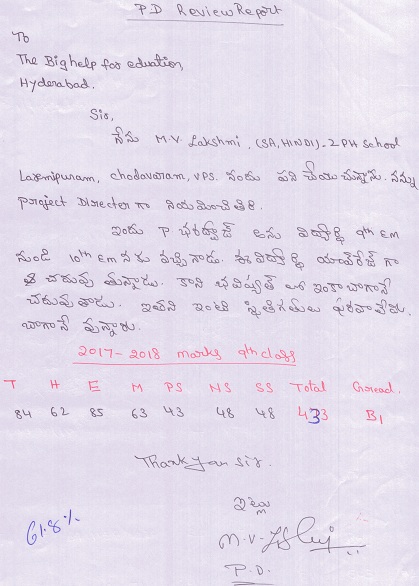 PD Review Report
To
The Big help for eduation,
Hyderabad.
Sir,
నేను M.V. Lakshmi, (SA, HINDI). Z PH School
Laxmipuram, chodavaram, VPS. నందు పని చేయు చున్నాను. నన్ను
project Director గా నియమించితిరి.
ఇందు P భరద్వాజ్ అను విద్యార్థి 9th EM
నుండి 10th EM నకు వచ్చినాడు. ఈ విద్యార్థి యావరేజ్ గా
చదువు తున్నాడు. కాని భవిష్యత్ లో ఇంకా బాగానే
చదువుతాడు. ఇతని ఇంటి స్థితిగతులు పరవాలేదు.
బాగానే వున్నారు.
2017-2018 marks 9th class
T H E M PS NS SS Total Gread.
84 62 85 63 43 48 48 433 B1
Thank you sir.
ఇట్లు
61.8%
M.V. L
P.D.